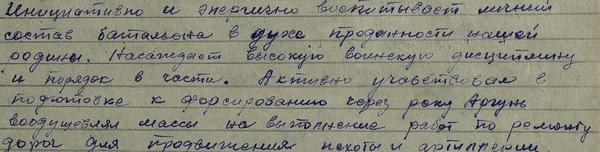 Инициативно и энергично воспитывает личный
состав батальона в духе преданности нашей
родины. Насаждает высокую воинскую дисциплину
и порядок в части. Активно участвовал в
подготовке к форсированию через реку Аргунь
воодушевлял массы на выполнение работ по ремонту
дорог для продвижения пехоты и артиллерии.